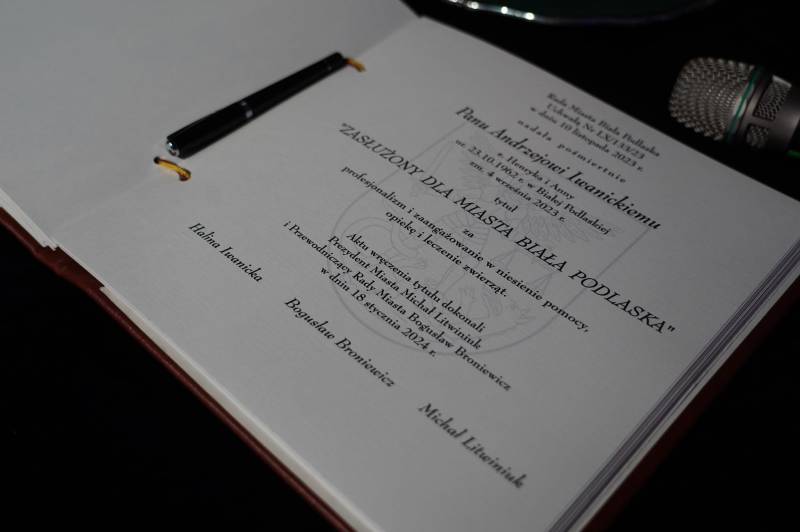 Rada Miasta Biała Podlaska
Uchwałą Nr LX/133/23
w dniu 10 listopada 2023 r.
nadała pośmiertnie
Panu Andrzejowi Iwanickiemu
s. Henryka i Anny
ur. 23.10.1962 r. w Białej Podlaskiej
zm. 4 września 2023 r.
tytuł
"ZASŁUŻONY DLA MIASTA BIAŁA PODLASKA"
za
profesjonalizm i zaangażowanie w niesienie pomocy,
opiekę i leczenie zwierząt.
Aktu wręczenia tytułu dokonali
Prezydent Miasta Michał Litwiniuk
i Przewodniczący Rady Miasta Bogusław Broniewicz
w dniu 18 stycznia 2024 r.
Halina Iwanicka
Bogusław Broniewicz
Michał Litwiniuk